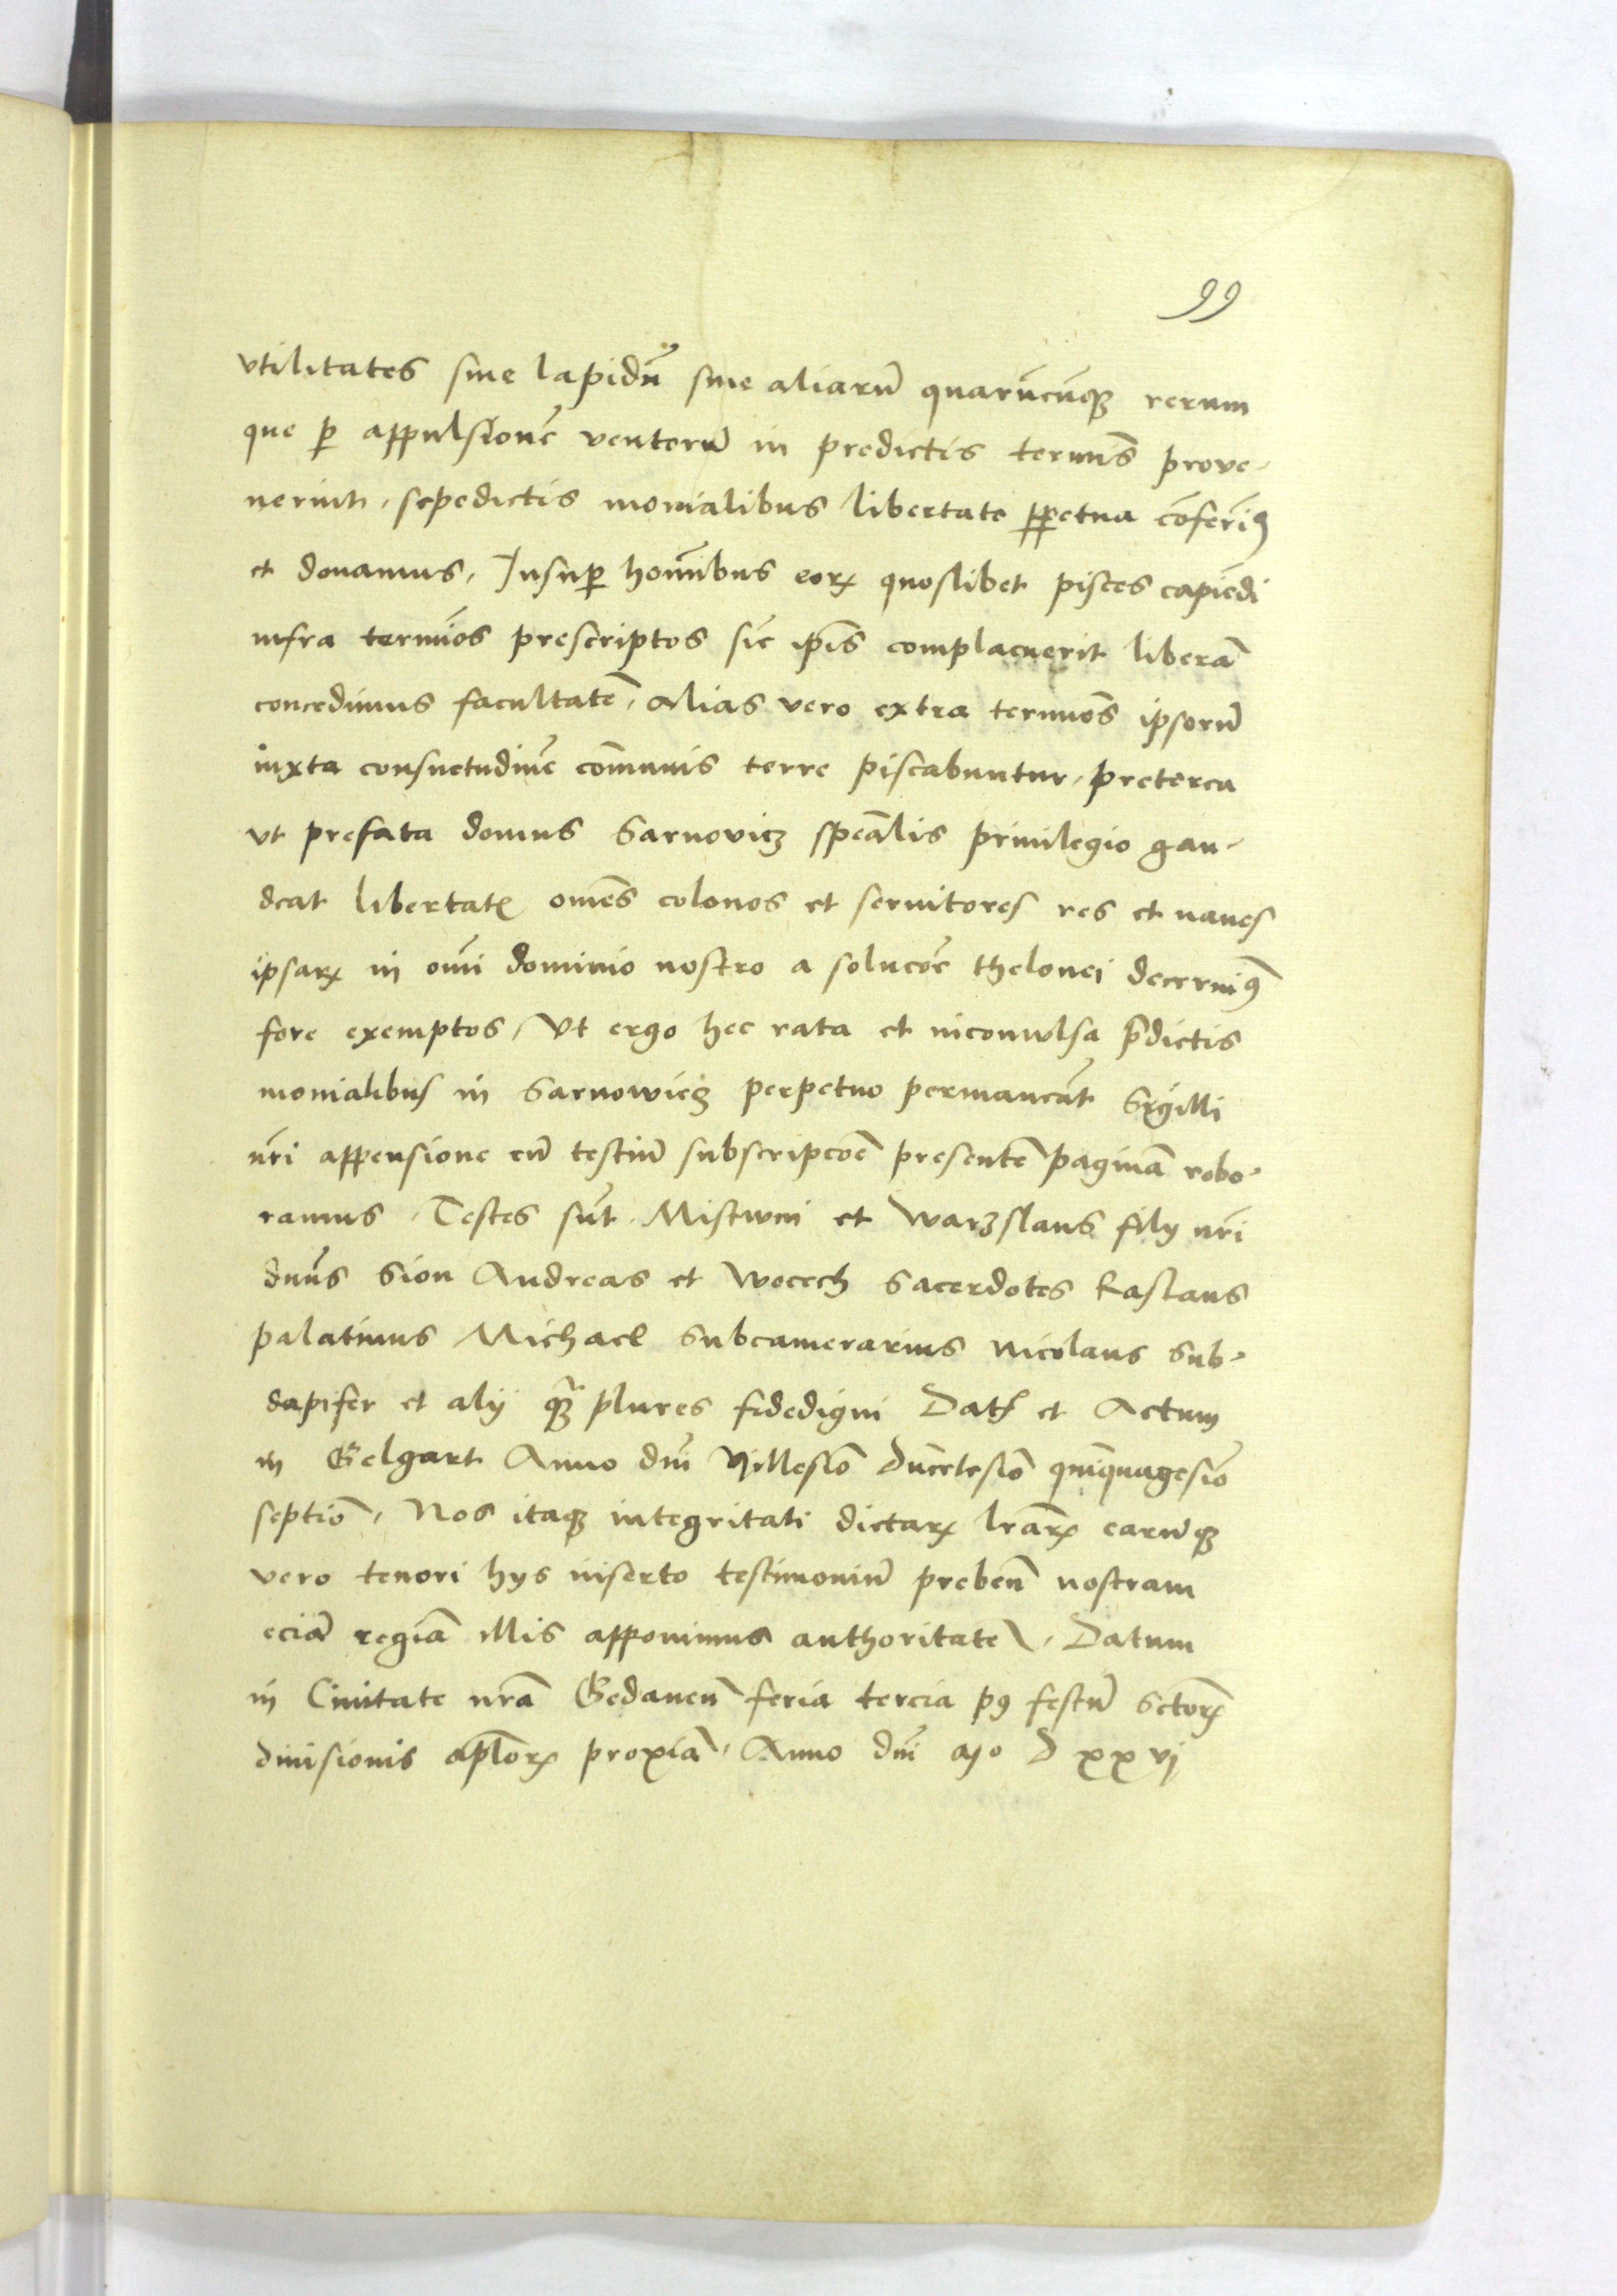 99
vtilitates siue lapidū siue aliarū quarūcūqꝫ rerum
que ꝑ appulsionē ventorū in predictis terminis prove-
nerint, sepedictis monialibus libertate ꝑpetua cōferimꝫ
et donamus, Insuꝑ hominibus eorꝝ quoslibet pisces capiēdi
infra terminos prescriptos sic ipīs complacuerit liberā
concedimus facultatē, Alias vero extra terminos ipsorū
iuxta consuetudinē cōmunis terre piscabuntur, preterea
vt prefata domus Sarnovicz speālis priuilegio gau-
deat libertatꝭ omēs colonos et seruitores res et naves
ipsarꝝ in omī dominio nostro a solucōe thelonei decernimꝰ
fore exemptos, Vt ergo hec rata et inconwlsa p̄dictis
monialibus in Sarnowicz perpetuo permaneāt Sigilli
nr̄i appensione cū testiū subscripcōe presentē paginā robo-
ramus, Testes sūt, Mistwni et Warzslaus filij nr̄i
dnūs Sion Andreas et Wocech Sacerdotes Raslaus
palatinus Michael Subcamerarius Nicolaus Sub-
dapifer et alij qꝫ plures fidedigni Datꝭ et Actum
in Belgart Anno dnī Millesimō Ducētesimō quīquagesimō
septimō, Nos itaqꝫ integritati dictarꝝ lrārꝝ earūqꝫ
vero tenori hys inserto testimoniū prebeñ nostram
eciā regiā illis apponimus authoritatē, Datum
in Ciuitate nrā Gedaneñ feria tercia pꝰ festū Sctōrꝝ
diuisionis aplōrꝝ proximā, Anno dnī Mº D xxvj